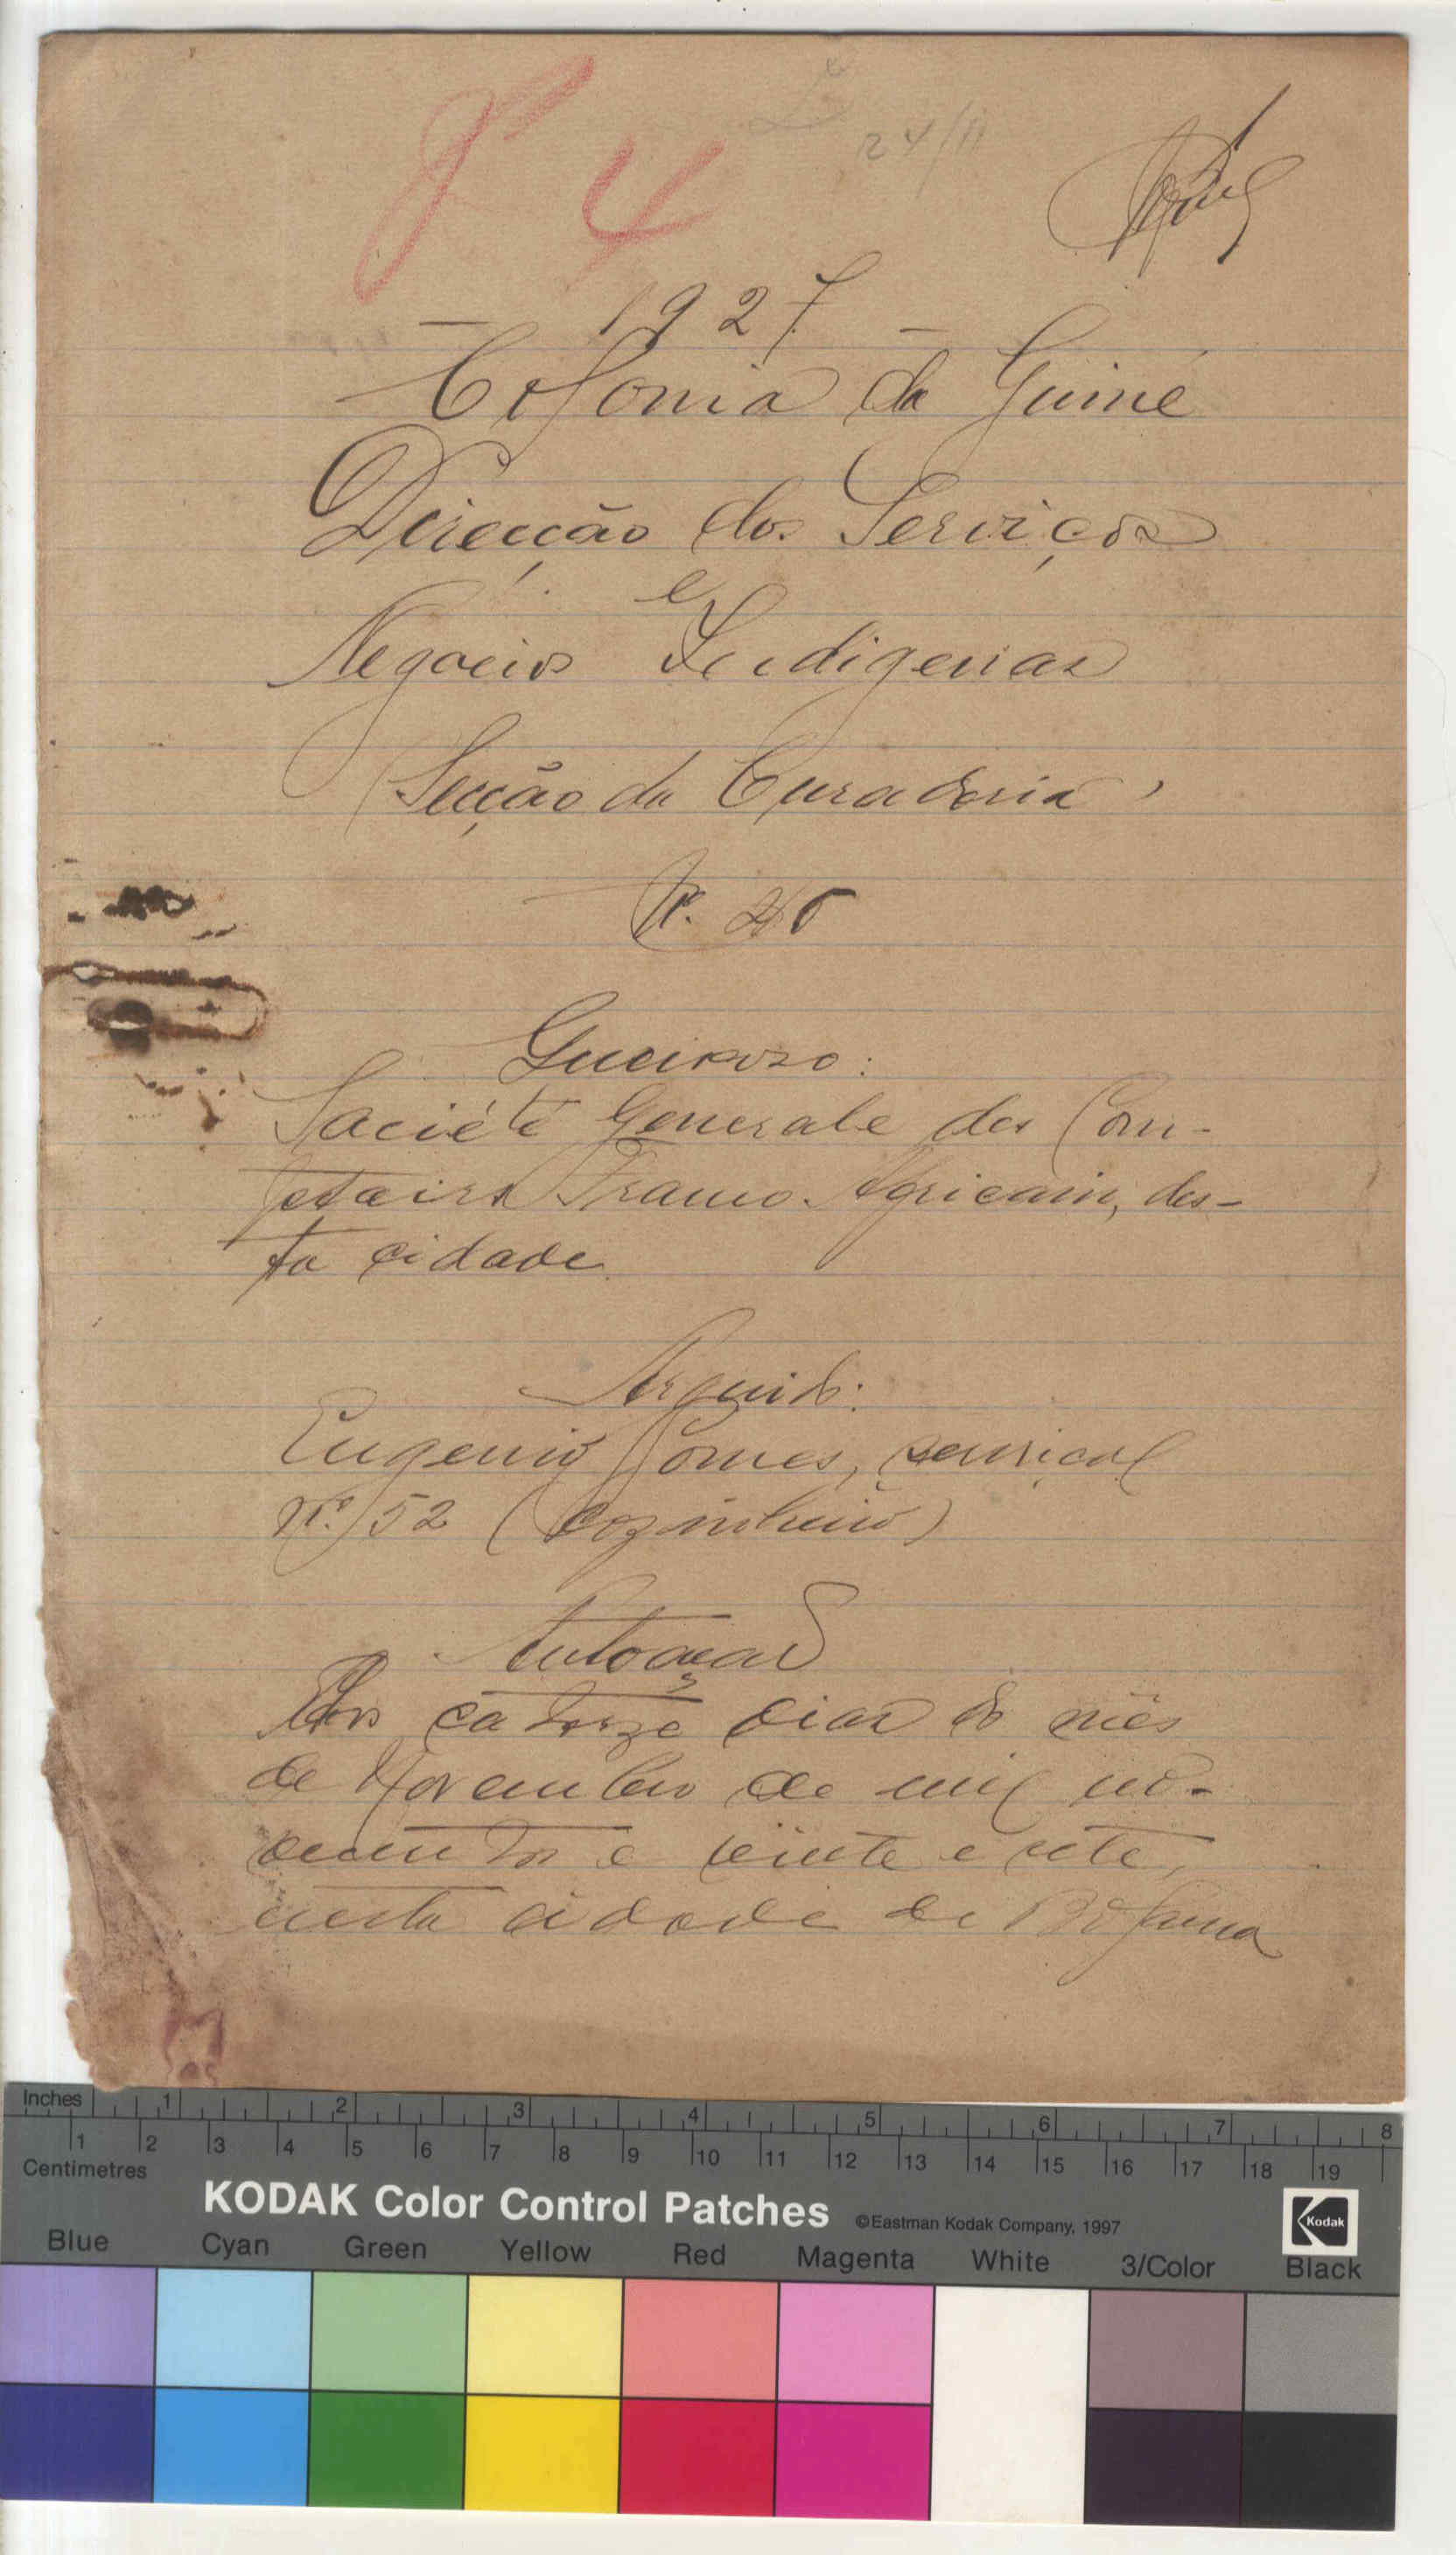 4
24/11
— 1927 —
Colonia da Guiné
Direcção dos Serviços
e
Negocios Indigenas
Secção da Curadoria
Nº.
Queixoso:
Société Generale des Com-
ptoirs Franco-Africain, des-
ta cidade.
Arguido:
Eugenio Gomes, serviçal
nº. 52 (cozinheiro)
Autoação
Aos catorze dias do mês
de Novembro de mil no-
vecentos e vinte e sete,
nesta cidade de Bolama
Inches 1 2 3 4 5 6 7 8
1 2 3 4 5 6 7 8 9 10 11 12 13 14 15 16 17 18 19
Centimetres
KODAK Color Control Patches ©Eastman Kodak Company, 1997
Kodak
Blue Cyan Green Yellow Red Magenta White 3/Color Black